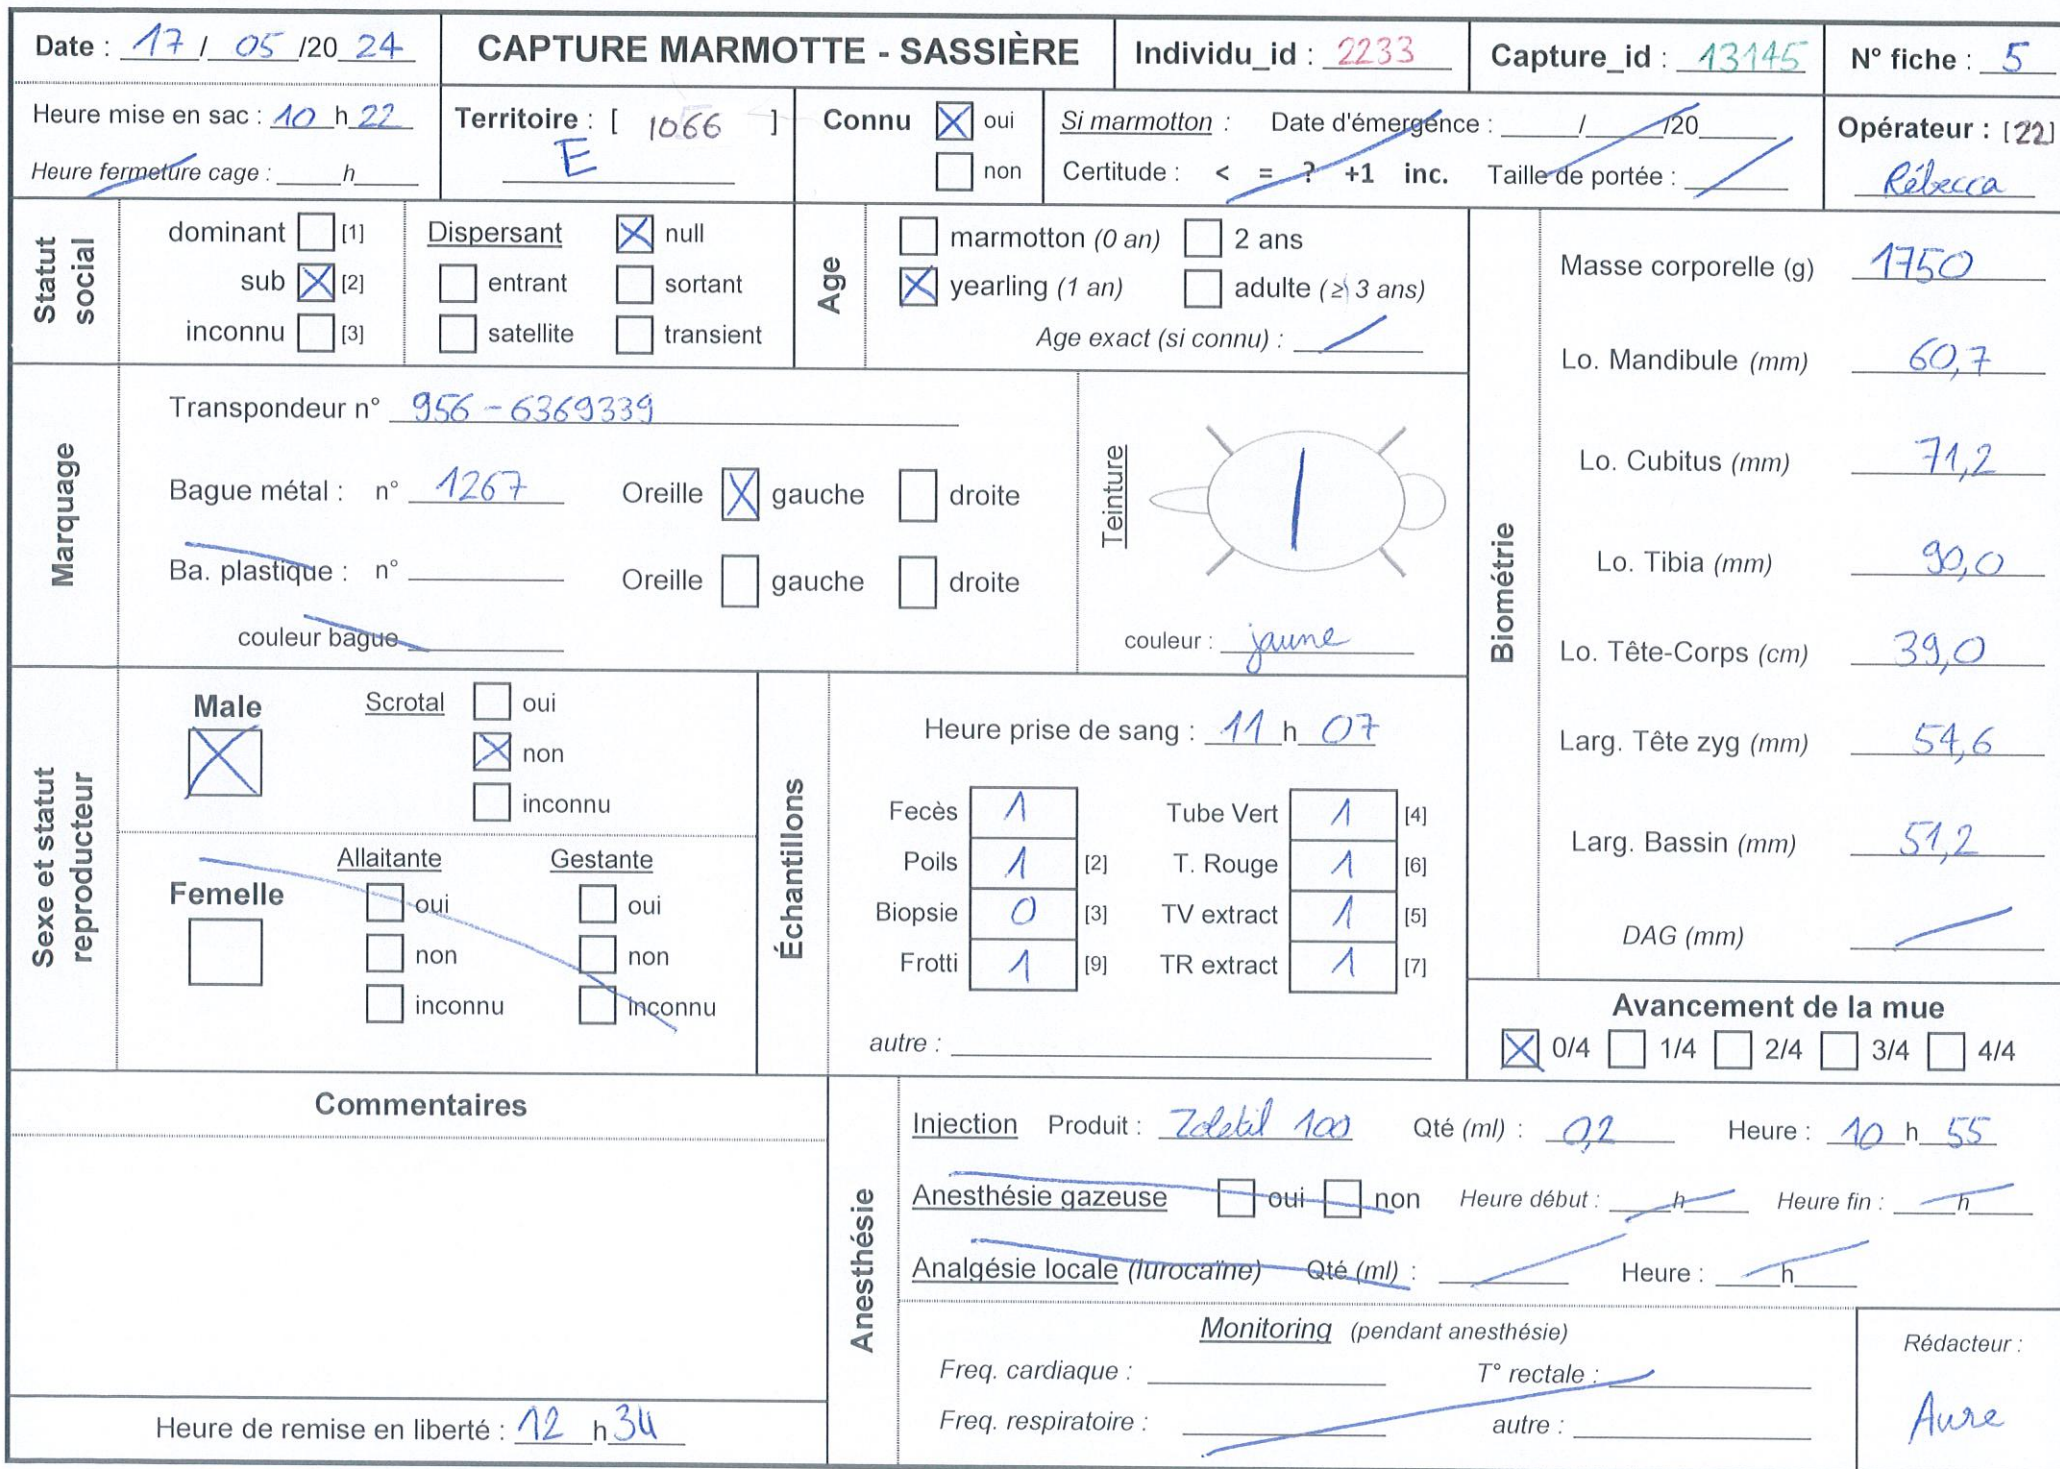 Date : 17 / 05 /20 24 CAPTURE MARMOTTE - SASSIÈRE Individu_id : 2233 Capture_id : 13145 N° fiche : 5
Heure mise en sac : 10 h 22 Territoire : [ 1066 ] Connu oui Si marmotton : Date d'émergence : / /20 Opérateur : [22]
Heure fermeture cage : h E non Certitude : < = ? +1 inc. Taille de portée : Rébecca
Statut social
dominant [1] Dispersant null
sub [2] entrant sortant
inconnu [3] satellite transient
Age
marmotton (0 an) 2 ans
yearling (1 an) adulte (≥ 3 ans)
Age exact (si connu) :
Marquage
Transpondeur n° 956-6369339
Bague métal : n° 1267 Oreille gauche droite
Ba. plastique : n° Oreille gauche droite
couleur bague
Teinture
couleur : jaune
Biométrie
Masse corporelle (g) 1750
Lo. Mandibule (mm) 60,7
Lo. Cubitus (mm) 71,2
Lo. Tibia (mm) 90,0
Lo. Tête-Corps (cm) 39,0
Larg. Tête zyg (mm) 54,6
Larg. Bassin (mm) 51,2
DAG (mm)
Sexe et statut reproducteur
Male Scrotal oui
non
inconnu
Femelle Allaitante Gestante
oui oui
non non
inconnu inconnu
Échantillons
Heure prise de sang : 11 h 07
Fecès 1 Tube Vert 1 [4]
Poils 1 [2] T. Rouge 1 [6]
Biopsie 0 [3] TV extract 1 [5]
Frotti 1 [9] TR extract 1 [7]
autre :
Avancement de la mue
0/4 1/4 2/4 3/4 4/4
Commentaires
Heure de remise en liberté : 12 h 34
Anesthésie
Injection Produit : Zoletil 100 Qté (ml) : 0,2 Heure : 10 h 55
Anesthésie gazeuse oui non Heure début : h Heure fin : h
Analgésie locale (lurocaïne) Qté (ml) : Heure : h
Monitoring (pendant anesthésie)
Freq. cardiaque : T° rectale :
Freq. respiratoire : autre :
Rédacteur :
Aure